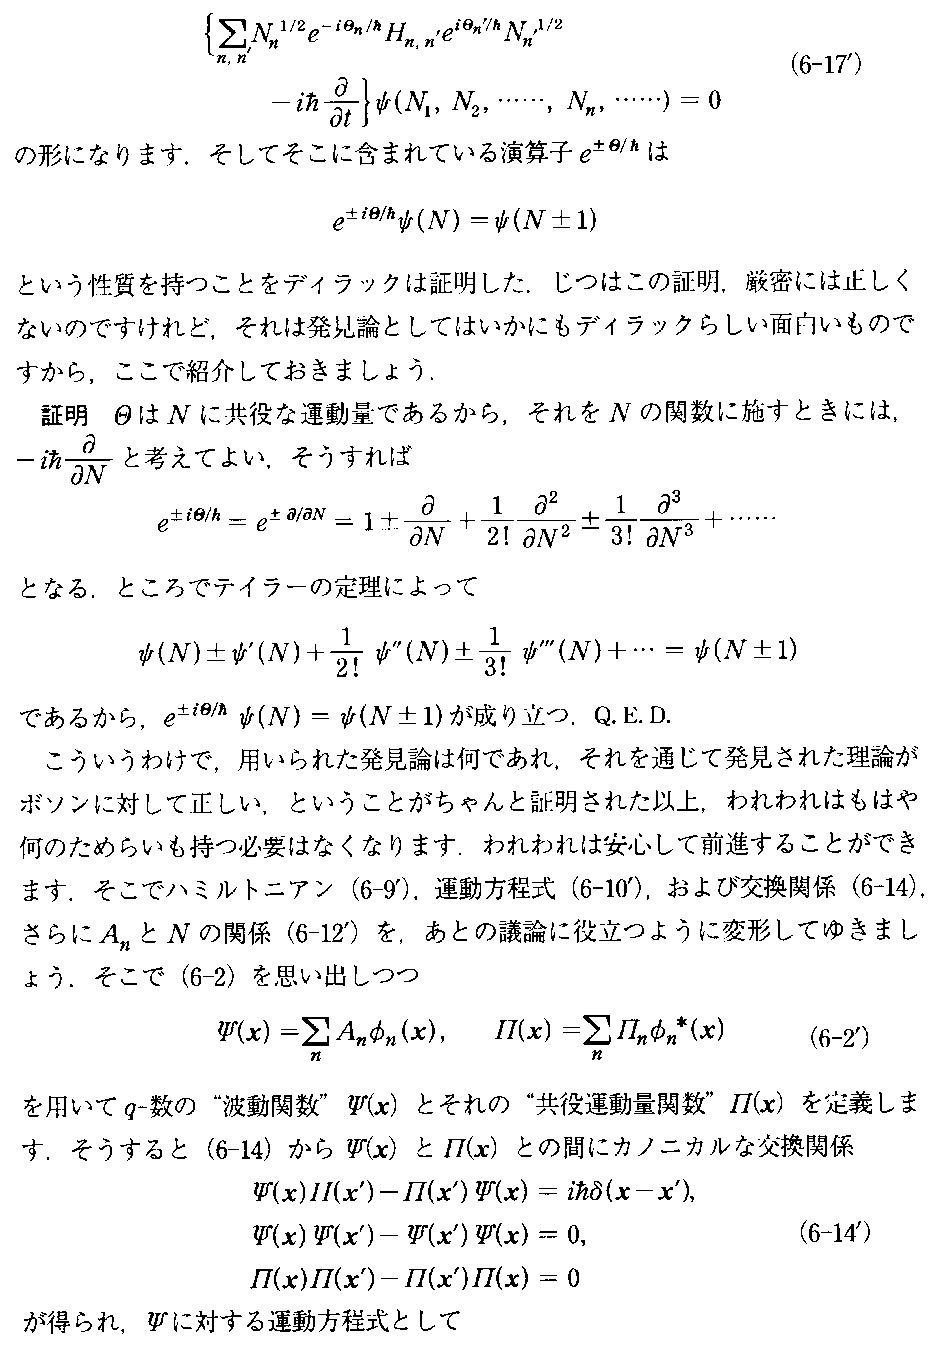 {∑_{n, n′} N_n^{1/2} e^{-iΘ_n/ħ} H_{n, n′} e^{iΘ_n′/ħ} N_n′^{1/2}
(6-17′)
-iħ ∂/∂t} ψ(N₁, N₂, ……, N_n, ……) = 0
の形になります．そしてそこに含まれている演算子 e^{±Θ/ħ} は
e^{±iΘ/ħ}ψ(N) = ψ(N±1)
という性質を持つことをディラックは証明した．じつはこの証明，厳密には正しく
ないのですけれど，それは発見論としてはいかにもディラックらしい面白いもので
すから，ここで紹介しておきましょう．
証明　Θ は N に共役な運動量であるから，それを N の関数に施すときには，
-iħ ∂/∂N と考えてよい，そうすれば
e^{±iΘ/ħ} = e^{±∂/∂N} = 1 ± ∂/∂N + 1/2! ∂²/∂N² ± 1/3! ∂³/∂N³ + ……
となる．ところでテイラーの定理によって
ψ(N) ± ψ′(N) + 1/2! ψ″(N) ± 1/3! ψ‴(N) + … = ψ(N±1)
であるから，e^{±iΘ/ħ} ψ(N) = ψ(N±1) が成り立つ．Q. E. D.
こういうわけで，用いられた発見論は何であれ，それを通じて発見された理論が
ボソンに対して正しい，ということがちゃんと証明された以上，われわれはもはや
何のためらいも持つ必要はなくなります．われわれは安心して前進することができ
ます．そこでハミルトニアン (6-9′)，運動方程式 (6-10′)，および交換関係 (6-14)，
さらに A_n と N の関係 (6-12′) を，あとの議論に役立つように変形してゆきまし
ょう．そこで (6-2) を思い出しつつ
Ψ(x) = ∑_n A_n φ_n(x),　Π(x) = ∑_n Π_n φ_n*(x)　(6-2′)
を用いて q-数の “波動関数” Ψ(x) とそれの “共役運動量関数” Π(x) を定義しま
す．そうすると (6-14) から Ψ(x) と Π(x) との間にカノニカルな交換関係
Ψ(x)Π(x′) - Π(x′)Ψ(x) = iħδ(x-x′),
Ψ(x)Ψ(x′) - Ψ(x′)Ψ(x) = 0,　(6-14′)
Π(x)Π(x′) - Π(x′)Π(x) = 0
が得られ，Ψ に対する運動方程式として